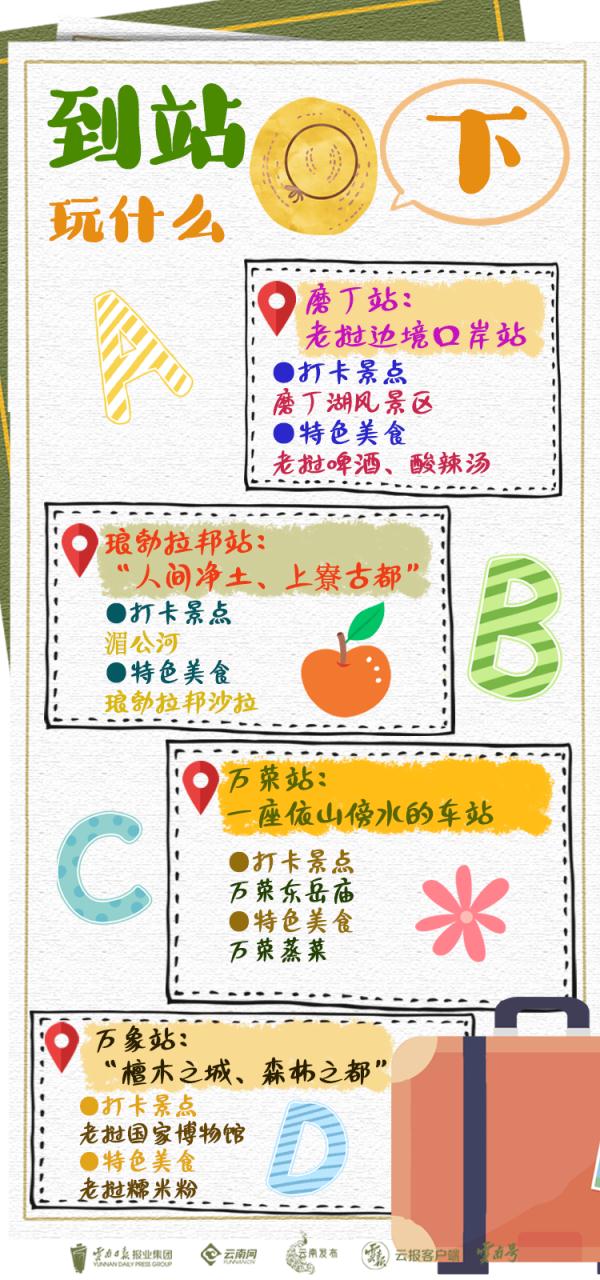 到站
下
玩什么
A
磨丁站：
老挝边境口岸站
●打卡景点
磨丁湖风景区
●特色美食
老挝啤酒、酸辣汤
琅勃拉邦站：
“人间净土、上寮古都”
●打卡景点
湄公河
●特色美食
琅勃拉邦沙拉
B
万荣站：
一座依山傍水的车站
●打卡景点
万荣东岳庙
●特色美食
万荣蒸菜
C
万象站：
“檀木之城、森林之都”
●打卡景点
老挝国家博物馆
●特色美食
老挝糯米粉
D
云南日报报业集团
YUNNAN DAILY PRESS GROUP
云南网
YUNNAN.CN
云南发布
云报客户端
云南号